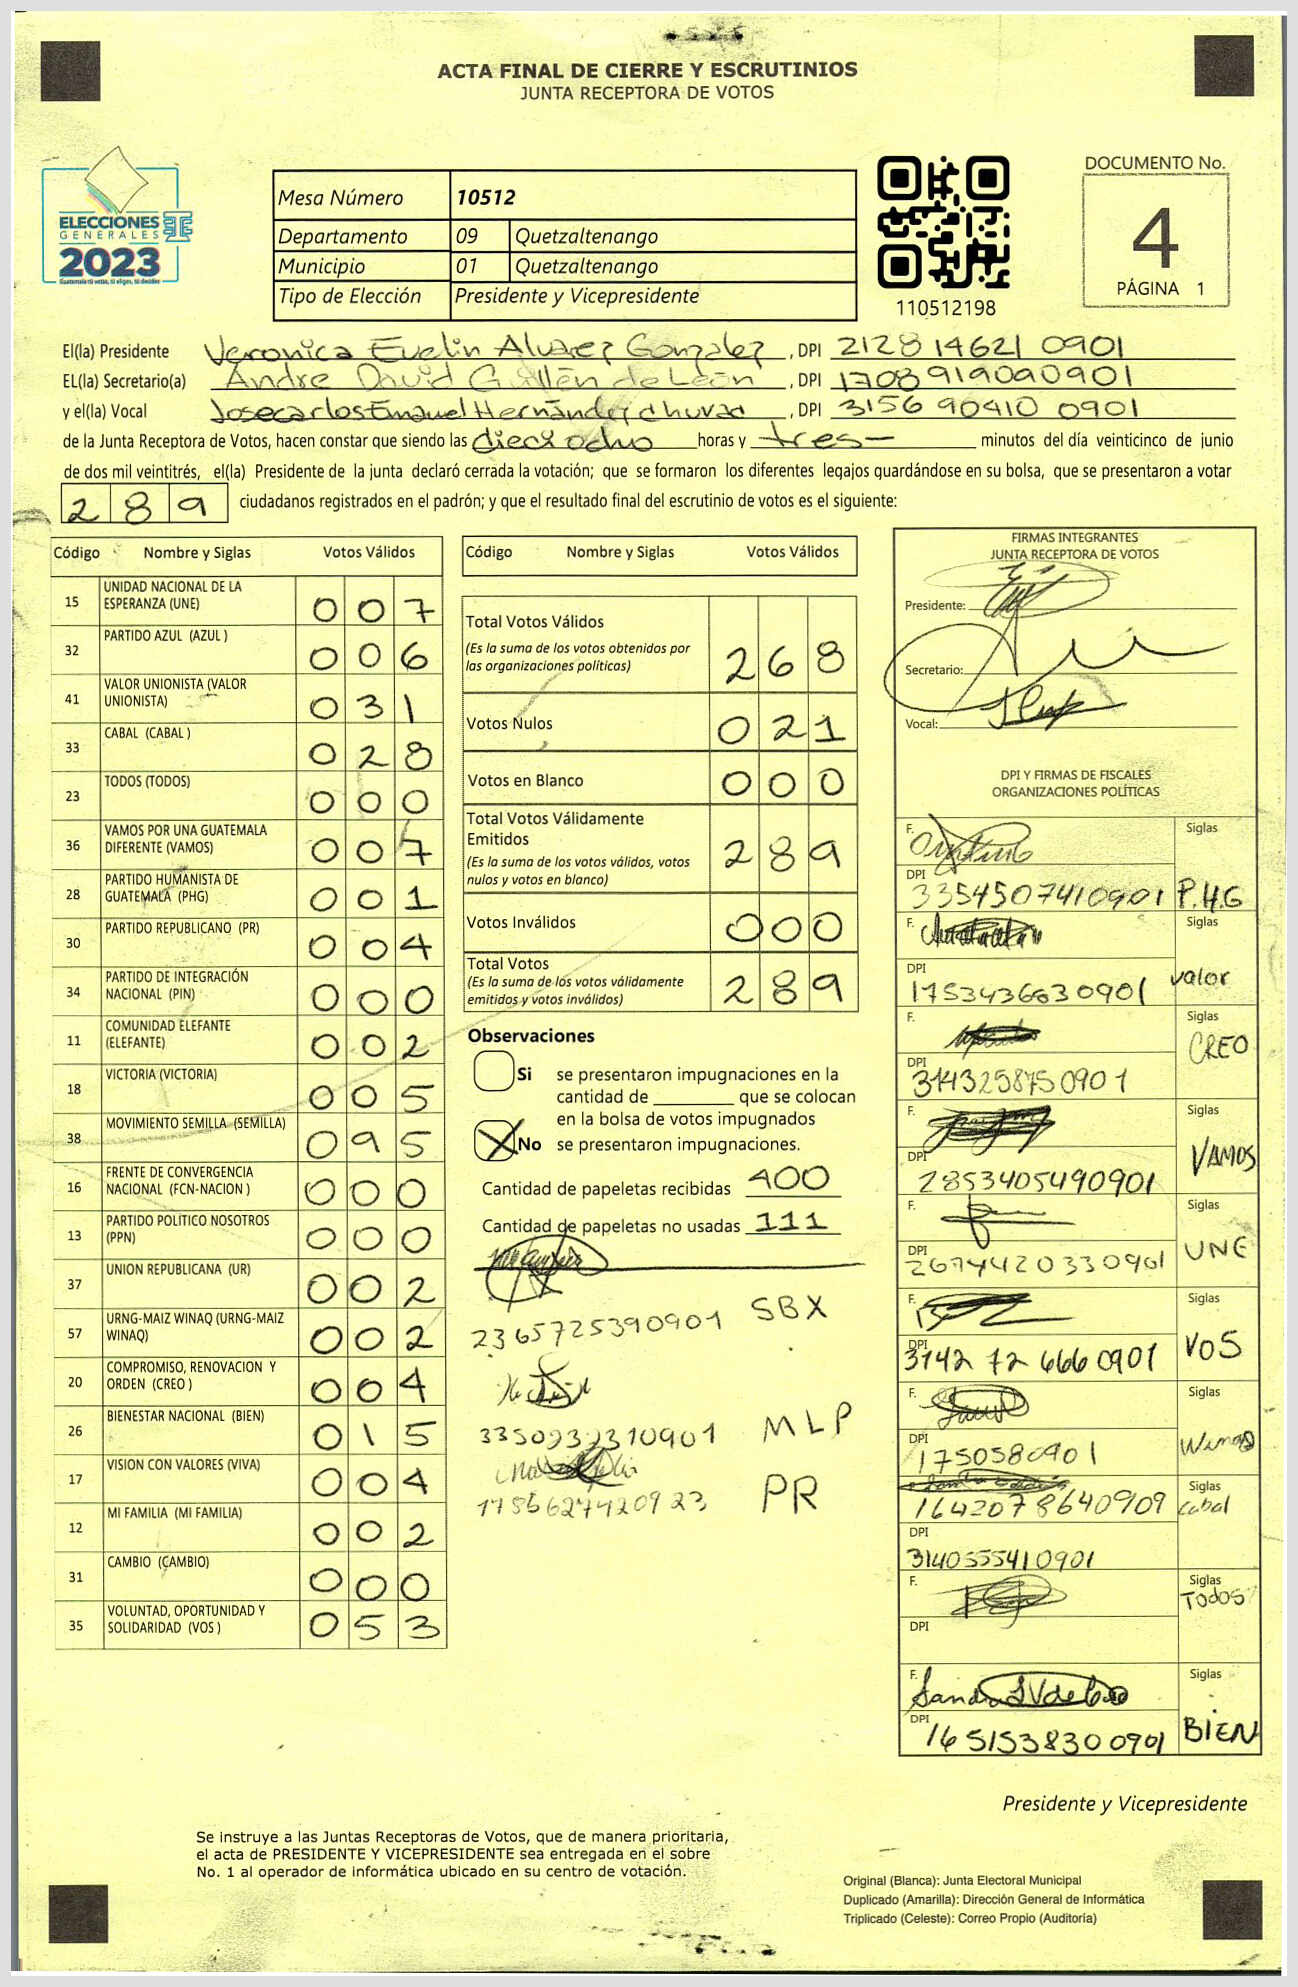 ACTA FINAL DE CIERRE Y ESCRUTINIOS
JUNTA RECEPTORA DE VOTOS
ELECCIONES
GENERALES
TSE
2023
Guatemala tú votas, tú eliges, tú decides
Mesa Número 10512
Departamento 09 Quetzaltenango
Municipio 01 Quetzaltenango
Tipo de Elección Presidente y Vicepresidente
110512198
DOCUMENTO No.
4
PÁGINA 1
El(la) Presidente Veronica Evelin Alvarez Gonzalez, DPI 2128 14621 0901
EL(la) Secretario(a) Andre David Guillén de León, DPI 1708919090901
y el(la) Vocal Josecarlos Emanuel Hernández, DPI 3156 90410 0901
de la Junta Receptora de Votos, hacen constar que siendo las dieciocho horas y tres- minutos del día veinticinco de junio
de dos mil veintitrés, el(la) Presidente de la junta declaró cerrada la votación; que se formaron los diferentes legajos guardándose en su bolsa, que se presentaron a votar
289 ciudadanos registrados en el padrón; y que el resultado final del escrutinio de votos es el siguiente:
Código Nombre y Siglas Votos Válidos
15 UNIDAD NACIONAL DE LA ESPERANZA (UNE) 007
32 PARTIDO AZUL (AZUL ) 006
41 VALOR UNIONISTA (VALOR UNIONISTA) 031
33 CABAL (CABAL ) 028
23 TODOS (TODOS) 000
36 VAMOS POR UNA GUATEMALA DIFERENTE (VAMOS) 007
28 PARTIDO HUMANISTA DE GUATEMALA (PHG) 001
30 PARTIDO REPUBLICANO (PR) 004
34 PARTIDO DE INTEGRACIÓN NACIONAL (PIN) 000
11 COMUNIDAD ELEFANTE (ELEFANTE) 002
18 VICTORIA (VICTORIA) 005
38 MOVIMIENTO SEMILLA (SEMILLA) 095
16 FRENTE DE CONVERGENCIA NACIONAL (FCN-NACION ) 000
13 PARTIDO POLITICO NOSOTROS (PPN) 000
37 UNION REPUBLICANA (UR) 002
57 URNG-MAIZ WINAQ (URNG-MAIZ WINAQ) 002
20 COMPROMISO, RENOVACION Y ORDEN (CREO ) 004
26 BIENESTAR NACIONAL (BIEN) 015
17 VISION CON VALORES (VIVA) 004
12 MI FAMILIA (MI FAMILIA) 002
31 CAMBIO (CAMBIO) 000
35 VOLUNTAD, OPORTUNIDAD Y SOLIDARIDAD (VOS ) 053
Código Nombre y Siglas Votos Válidos
Total Votos Válidos 268
(Es la suma de los votos obtenidos por
las organizaciones políticas)
Votos Nulos 021
Votos en Blanco 000
Total Votos Válidamente
Emitidos 289
(Es la suma de los votos válidos, votos
nulos y votos en blanco)
Votos Inválidos 000
Total Votos 289
(Es la suma de los votos válidamente
emitidos y votos inválidos)
Observaciones
Si se presentaron impugnaciones en la
cantidad de ________ que se colocan
en la bolsa de votos impugnados
X No se presentaron impugnaciones.
Cantidad de papeletas recibidas 400
Cantidad de papeletas no usadas 111
2365725390901 SBX
3350232310901 MLP
PR
FIRMAS INTEGRANTES
JUNTA RECEPTORA DE VOTOS
Presidente:
Secretario:
Vocal:
DPI Y FIRMAS DE FISCALES
ORGANIZACIONES POLÍTICAS
F. Siglas
DPI 3354507410901 P.H.G
F. Siglas
DPI 1753436630901 valor
F. Siglas
DPI 3143258750901 CREO
F. Siglas
DPI 2853405490901 VAMOS
F. Siglas
DPI 2674420330901 UNE
F. Siglas
DPI 3142 72 666 0901 VOS
F. Siglas
DPI 1750580901 Winaq
Siglas
1642078640909 Cabal
DPI
3140555410901
F. Siglas
Todos
DPI
F. Sandra Siglas
DPI 1651538300901 BIEN
Presidente y Vicepresidente
Se instruye a las Juntas Receptoras de Votos, que de manera prioritaria,
el acta de PRESIDENTE Y VICEPRESIDENTE sea entregada en el sobre
No. 1 al operador de informática ubicado en su centro de votación.
Original (Blanca): Junta Electoral Municipal
Duplicado (Amarilla): Dirección General de Informática
Triplicado (Celeste): Correo Propio (Auditoría)